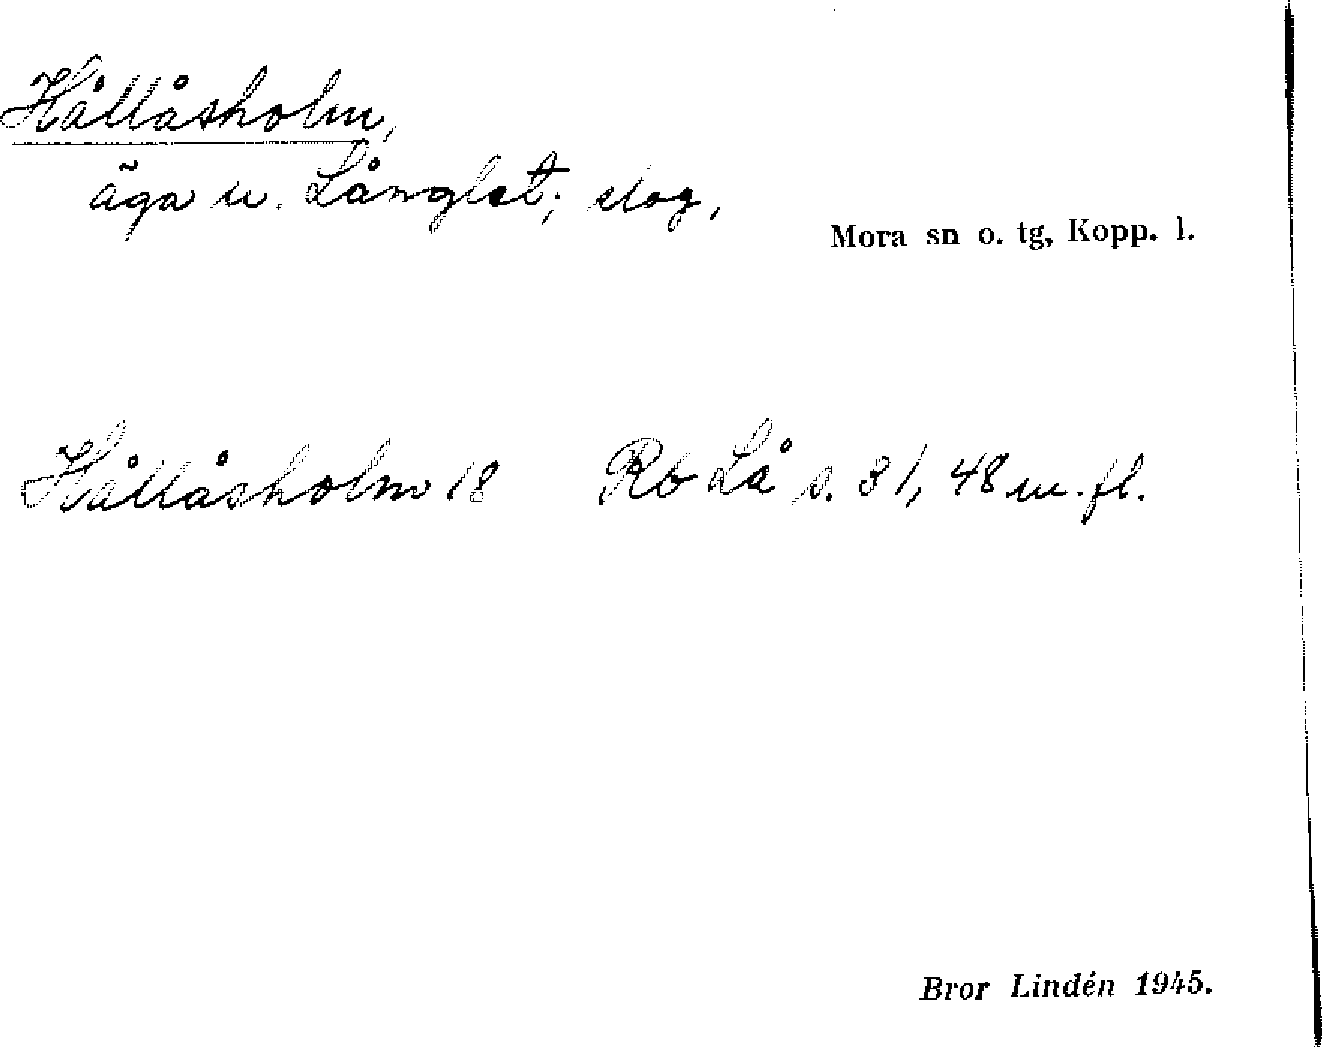 Hållåsholm,
äga u. Långlet; slog,
Mora sn o. tg, Kopp. l.
Hållåsholm 18 Rb Lå s. 31, 48 m. fl.
Bror Lindén 1945.